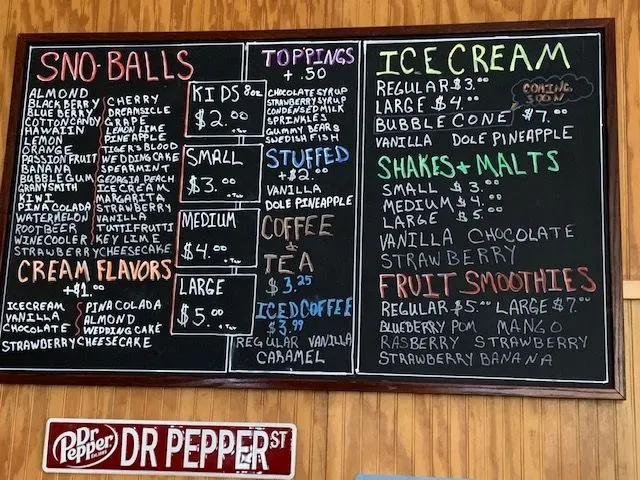 SNO-BALLS
ALMOND
BLACKBERRY
BLUEBERRY
COTTONCANDY
HAWAIIN
LEMON
ORANGE
PASSION FRUIT
BANANA
BUBBLEGUM
GRANYSMITH
KIWI
PINA COLADA
WATERMELON
ROOTBEER
WINECOOLER
STRAWBERRYCHEESECAKE
CHERRY
DREAMSICLE
GRAPE
LEMON LIME
PINEAPPLE
TIGER'S BLOOD
WEDDING CAKE
SPEARMINT
GEORGIA PEACH
ICE CREAM
MARGARITA
STRAWBERRY
VANILLA
TUTTIFRUTTI
KEY LIME
CREAM FLAVORS
+$1.00
ICECREAM
VANILLA
CHOCOLATE
PINA COLADA
ALMOND
WEDDING CAKE
STRAWBERRY CHEESECAKE
KIDS 8oz
$2.00
+ Tax
SMALL
$3.00
+ Tax
MEDIUM
$4.00
+ Tax
LARGE
$5.00
+ Tax
TOPPINGS
+ .50
CHOCOLATE SYRUP
STRAWBERRY SYRUP
CONDENSED MILK
SPRINKLES
GUMMY BEARS
SWEDISH FISH
STUFFED
+$2.00
VANILLA
DOLE PINEAPPLE
COFFEE
&
TEA
$3.25
ICED COFFEE
$3.99
REGULAR VANILLA
CARAMEL
ICE CREAM
REGULAR $3.00
LARGE $4.00
COMING SOON
BUBBLE CONE $7.00
VANILLA DOLE PINEAPPLE
SHAKES + MALTS
SMALL $3.00
MEDIUM $4.00
LARGE $5.00
VANILLA CHOCOLATE
STRAWBERRY
FRUIT SMOOTHIES
REGULAR $5.00 LARGE $7.00
BLUEBERRY POM MANGO
RASBERRY STRAWBERRY
STRAWBERRY BANANA
Dr Pepper
DR PEPPER ST